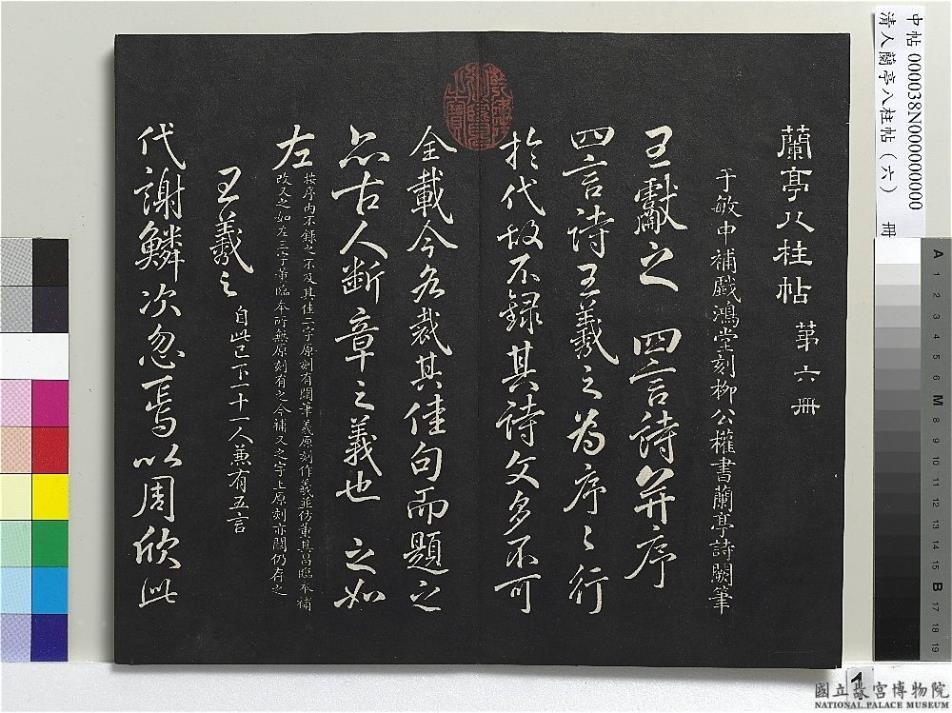 蘭亭八柱帖 第六冊
于敏中補戲鴻堂刻柳公權書蘭亭詩闕筆
王獻之 四言詩并序
四言詩王羲之為序序行
於代故不錄其詩文多不可
全載今各裁其佳句而題之
亦古人斷章之義也 之如
左
按序內不錄之不及其佳二字原刻有闕筆義原刻作羲並仿董其昌臨本補
改又之如左三字董臨本所無原刻有之今補又之字上原刻亦闕仍存之
王羲之 自此已下十一人兼有五言
代謝鱗次忽焉以周欣此
中帖000038N000000000
清人蘭亭八柱帖(六) 冊
A 1 2 3 4 5 6 M 8 9 10 11 12 13 14 15 B 17 18 19
1
國立故宮博物院
NATIONAL PALACE MUSEUM